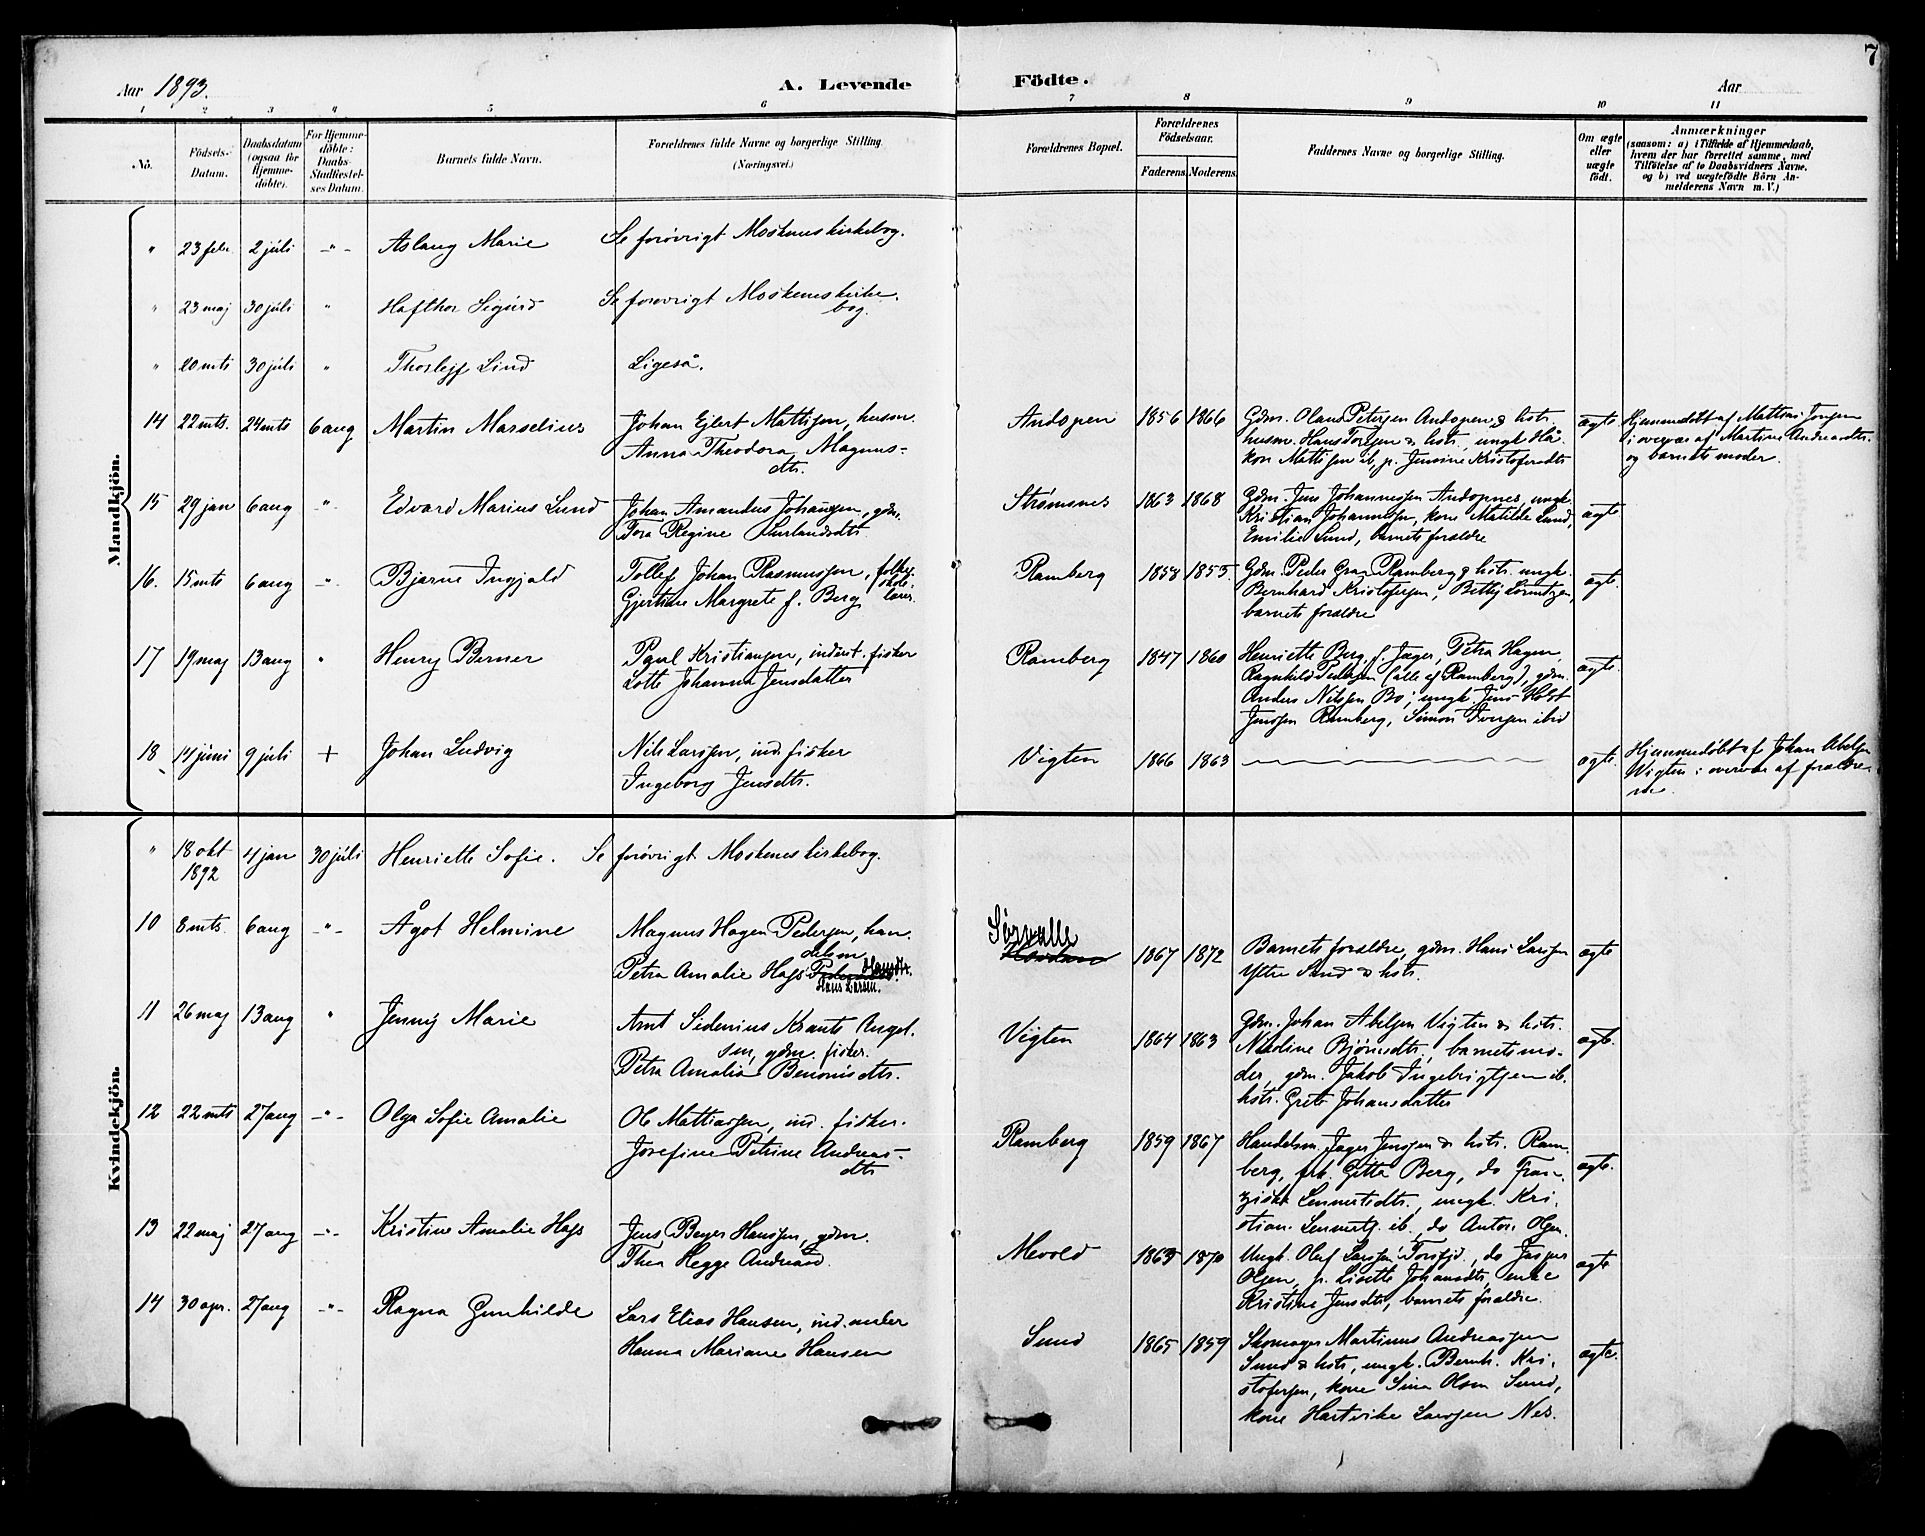 7
Aar 1893.
A. Levende Födte.
Aar
1 2 3 4 5 6 7 8 9 10 11
No.
Födsels-Datum.
Daabsdatum (ogsaa för Hjemme-döbte).
For Hjemme-döbte: Daabs-Stadfæstel-ses Datum.
Barnets fulde Navn.
Forældrenes fulde Navne og borgerlige Stilling (Næringsvei.)
Forældrenes Bopæl.
Forældrenes Födselsaar.
Faderens Moderens
Faddernes Navne og borgerlige Stilling.
Om ægte eller uægte födt.
Anmærkninger
(saasom: a) i Tilfælde af Hjemmedaab,
hvem der har forrettet samme, med
Tilföielse af to Daabsvidners Navne,
og b) ved uægtefödte Börn An-
melderens Navn m. V.)
Mandkjön.
" 23 febr 2 júli -"- Aslaug Marie Se forøvrigt Moskenes kirkebog.
" 23 maj 30 júli " Hafthor Sigurd Se forøvrigt Moskenes kirke
bog.
" 20 mts 30 júli " Thorleif Lind Ligeså.
14 22 mts. 24 mts 6 aug Martin Marselius Johan Ejlert Mattisen, husm.
Anna Theodora Magnus-
dtr.
Andopen 1856 1866 Gdm. Olaus Petersen Andopen & hstr.
husm. Hans Torgersen & hstr, ungk Hå-
kon Mattisen ib, p. Jensine Kristofersdtr
ægte
Hjemmedøbt af Mattias
i overvær af Martine Andreasdtr.
og barnets moder.
15 29 jan 6 aug -"- Edvard Marius Lund Johan Amandus Johansen, gdm.
Tora Regine
Strømsnes 1863 1868 Gdm. Jens Johannessen Andopnes, ungk.
Kristian Johannessen, kone Matilde Lund,
Emilie Lund, barnets forældre
ægte
16. 15 mts 6 aug -"- Bjarne Ingjald Tollef Johan Rasmussen, folke
skole
lærer.
Gjertine Margrete f. Berg
Ramberg 1858 1855. Gdm. Peder Grag Ramberg & hstr. ungk.
Bernhard Kristofersen, Betty Lorentzen,
barnets forældre
ægte
17 19 maj 13 aug " Henry Berner Paul Kristiansen, inderst. fisker
Lotte Johanna Jensdatter
Ramberg 1847 1860 Henriette Berg f. Jæger, Petra Hagen,
Ragnhild Pedersen (alle af Ramberg), gdm.
Anders Nilssen Bø, ungk. Jens Holst
Jenssen Ramberg, Simon Iversen ibid
ægte.
18 14 juni 9 júli + Johan Ludvig Nils Larssen, ind. fisker
Ingeborg Jensdtr.
Vigten 1866 1863
ægte.
Hjemmedøbt af Johan Abelsen
Vigten i overvær af forældre
ne.
Kvindekjön.
" 18 okt
1892 4 jan 30 júli Henriette Sofie. Se forøvrigt Moskenes kirkebog.
10 8 mts. 6 aug -"- Ågot Helmine Magnus Hagen Pedersen, han-
delsm.
Petra Amalie Hafs Hansdtr.
Hans Larsen.
Sørvalle
1867 1872 Barnets forældre, gdm. Hans Larssen
Ytre Sund & hstr.
ægte
11 26 maj 13 aug " Jenny Marie Arnt Sidenius Krants Angel-
sen, gdm. fisker.
Petra Amalia Benonisdtr.
Vigten 1864 1863 Gdm. Johan Abelsen Vigten & hstr.
Nikoline Bjørnsdtr., barnets mo-
der, gdm. Jakob Ingebrigtsen ib.
hstr. Grete Johansdatter
ægte.
12 22 mts 27 aug -"- Olga Sofie Amalie Ole Mattiassen, ind. fisker.
Josefine Petrine Andreas-
dtr
Ramberg 1859 1867 Handelsm. Jæger Jenssen & hstr. Ram-
berg, frk. Gitta Berg, do Fran-
ziska Lennertsdtr., ungk. Kri-
stian Lennerts. ib., do Anton Olsen.
ægte.
13 22 maj 27 aug -"- Kristine Amalie Hafs Jens Beyer Hanssen, gdm.
Thea Hegge Andreasd.
Mevold 1865 1870 Ungk. Oluf Larssen Torsfjd., do Jasper
Olsen, p. Lisette Johansdtr, enke
Kristine Jensdtr, barnets forældre.
ægte
14 30 apr. 27 aug -"- Ragna Gunhilde Lars Elias Hansen, ind.
Hanna Mariane Hansen
Sund 1865 1859 Skomager Martinus Andreassen
Sund & hstr, ungk. Bernh. Kri-
stofersen, kone Sina Olsen Sund,
kone Hartvikke Larssen Nes.
ægte.